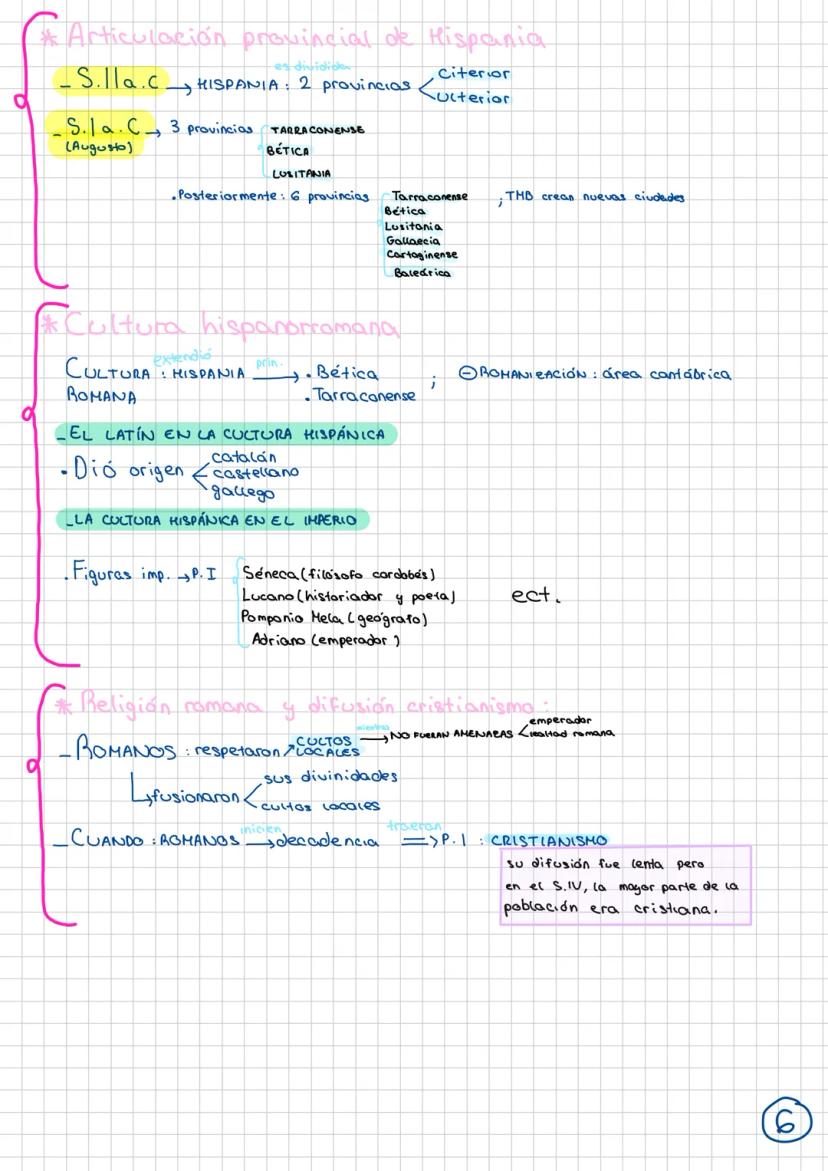 * Articulación provincial de Hispania
es dividida
- S.II a.C → HISPANIA: 2 provincias
Citerior
Ulterior
- S.I a.C → 3 provincias
(Augusto)
TARRACONENSE
BÉTICA
LUSITANIA
.Posteriormente: 6 provincias
Tarraconense
Bética
Lusitania
Gallaecia
Cartaginense
Baleárica
; TMB crean nuevas ciudades
* Cultura hispanorromana
extendió
prin.
CULTURA : HISPANIA → . Bética
ROMANA
. Tarraconense
; ⊖ ROMANIZACIÓN : área cantábrica
- EL LATÍN EN LA CULTURA HISPÁNICA
. Dió origen
catalán
castellano
gallego
- LA CULTURA HISPÁNICA EN EL IMPERIO
. Figuras imp. → P.I
Séneca (filósofo cordobés)
Lucano (historiador y poeta)
Pomponio Mela (geógrafo)
Adriano (emperador)
ect.
* Religión romana y difusión cristianismo:
- ROMANOS : respetaron ↗ CULTOS LOCALES
mientras
→ NO FUERAN AMENAZAS
emperador
lealtad romana
↳ fusionaron
sus divinidades
cultos locales
inicien
traeran
- CUANDO : ROMANOS → decadencia => P.I : CRISTIANISMO
su difusión fue lenta pero
en el S.IV, la mayor parte de la
población era cristiana.
6